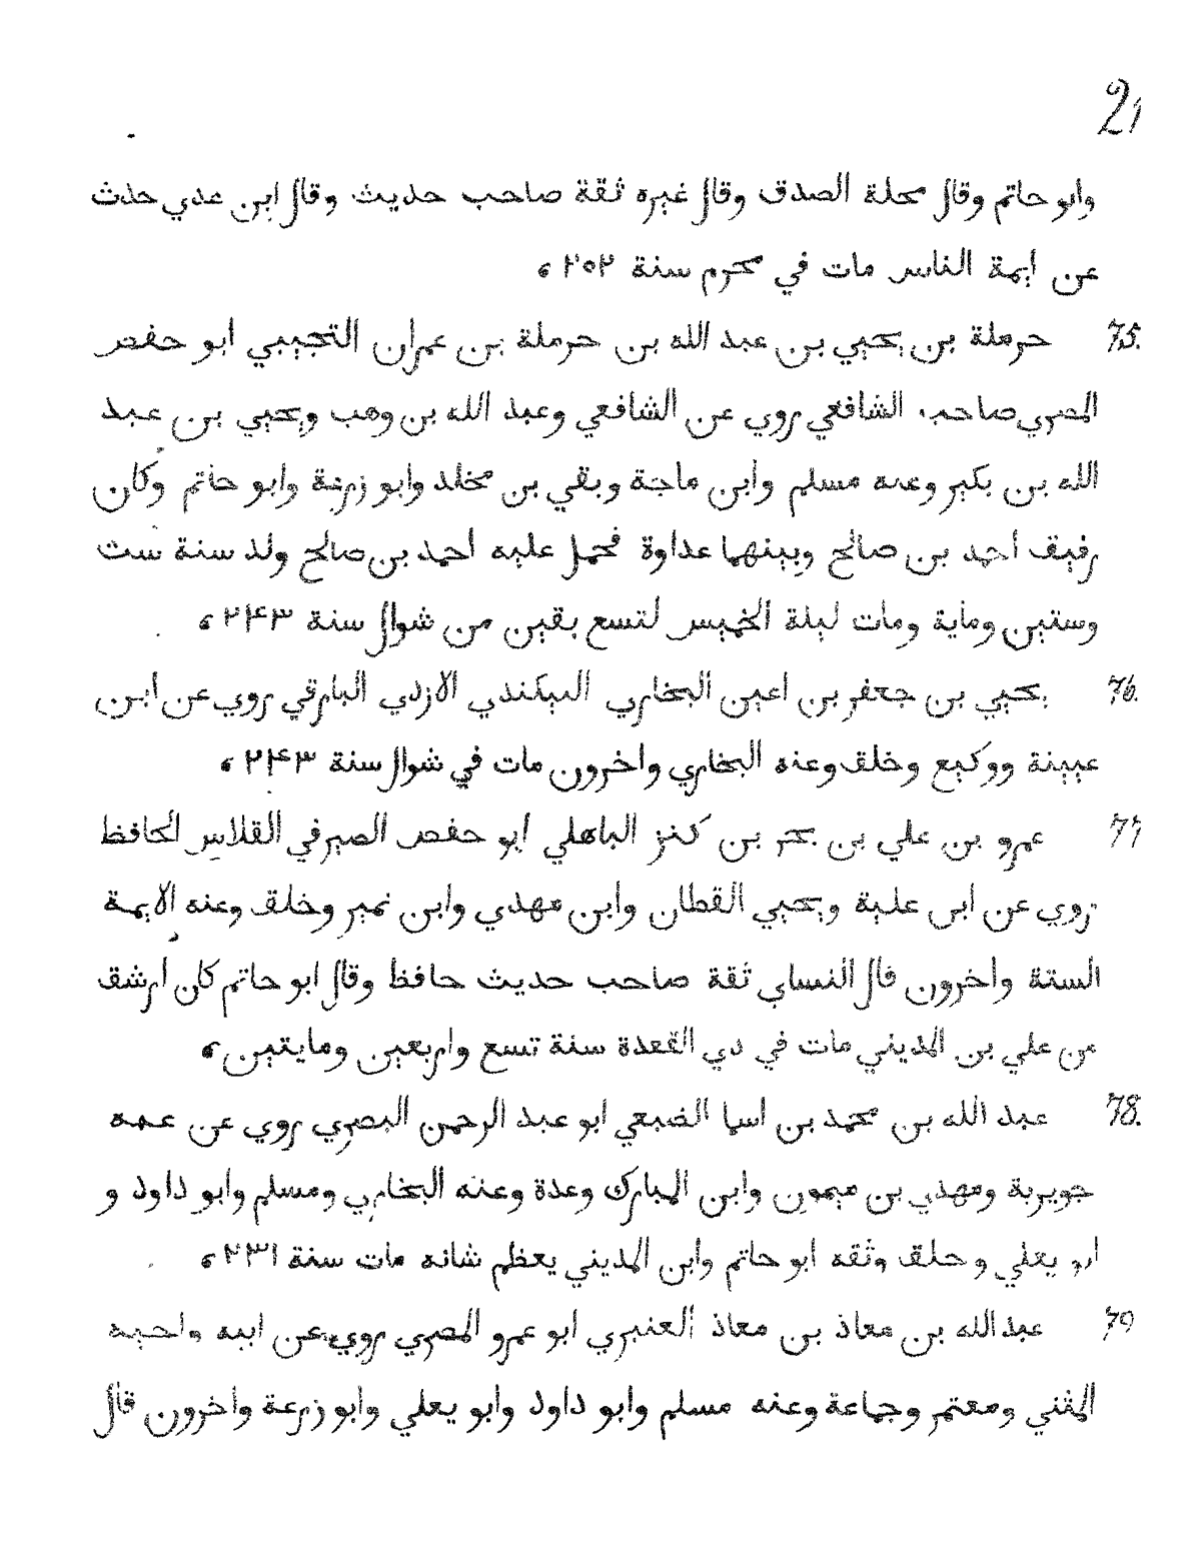 21
وابو حاتم وقال محلة الصدق وقال غيره ثقة صاحب حديث وقال ابن عدي حدث
عن ايمة الناس مات في محرم سنة ٢٥٢ ،
75. حرملة بن يحيي بن عبد الله بن حرملة بن عمران التجيبي ابو حفص
المصري صاحب الشافعي روي عن الشافعي وعبد الله بن وهب ويحيي بن عبد
الله بن بكير وعنه مسلم وابن ماجة وبقي بن مخلد وابو زرعة وابو حاتم وكان
رفيق احمد بن صالح وبينهما عداوة فحمل عليه احمد بن صالح ولد سنة ست
وستين وماية ومات ليلة الخميس لتسع بقين من شوال سنة ٢۴٣ ،
76. يحيي بن جعفر بن اعين البخاري البيكندي الازدي البارقي روي عن ابن
عيينة ووكيع وخلق وعنه البخاري واخرون مات في شوال سنة ٢۴٣ ،
77 عمرو بن علي بن بحر بن كنز الباهلي ابو حفص الصيرفي القلاس الحافظ
روي عن ابن علية ويحيي القطان وابن مهدي وابن نمير وخلق وعنه الايمة
الستة واخرون قال النساي ثقة صاحب حديث حافظ وقال ابو حاتم كان ارشق
من علي بن المديني مات في دي القعدة سنة تسع واربعين ومايتين ،
78. عبد الله بن محمد بن اسيا الضبعي ابو عبد الرحمن البصري روي عن عمه
جويرية ومهدي بن ميمون وابن المبارك وعدة وعنه البخاري ومسلم وابو داود و
ابو يعلي وخلق وثقه ابو حاتم وابن المديني يعظم شانه مات سنة ٢٣١ ،
79 عبد الله بن معاذ بن معاذ العنبري ابو عمرو المصري روي عن ابيه واخيه
المثني ومعتمر وجماعة وعنه مسلم وابو داود وابو يعلي وابو زرعة واخرون قال